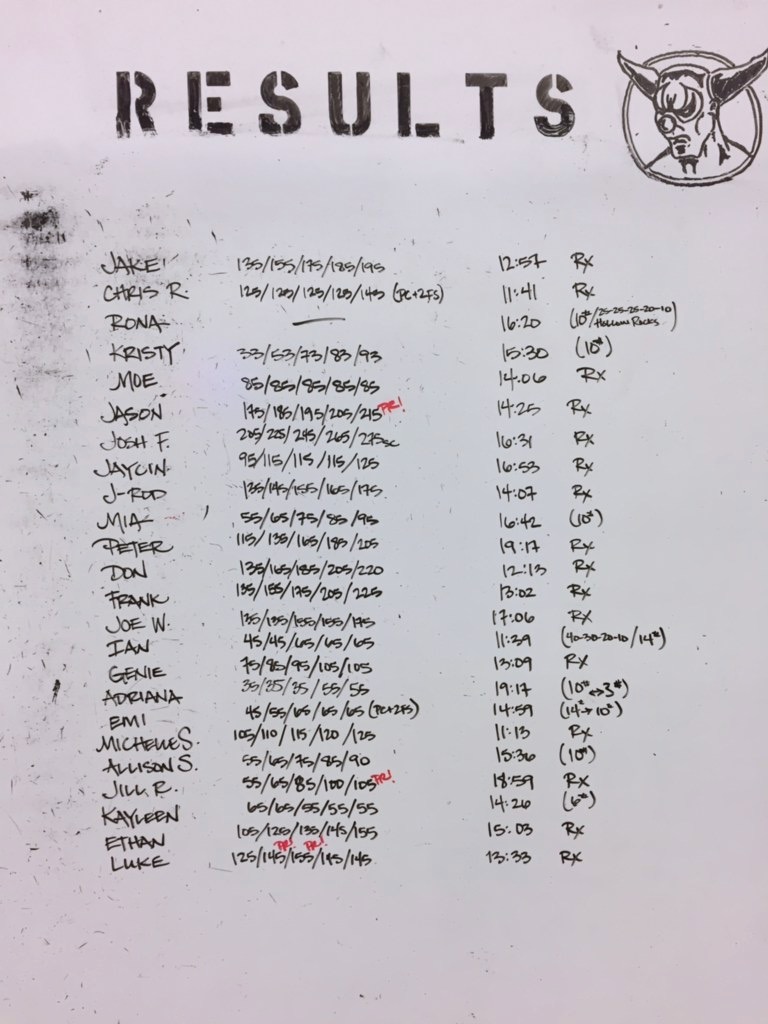 RESULTS
JAKE 135/155/175/185/195 12:57 Rx
CHRIS R. 125/125/125/125/145 (PC+2FS) 11:41 Rx
RONA — 16:20 (10#/25-25-25-20-10 Hollow Rocks)
KRISTY 33/53/73/83/93 15:30 (10#)
MOE 85/85/85/85/85 14:06 Rx
JASON 175/185/195/205/215 PR! 14:25 Rx
JOSH F. 205/225/245/265/275sc 16:31 Rx
JAYCIN 95/115/115/115/125 16:53 Rx
J-ROD 135/145/155/165/175 14:07 Rx
MIA 55/65/75/85/95 16:42 (10#)
PETER 115/135/165/185/205 19:17 Rx
DON 135/165/185/205/220 12:13 Rx
FRANK 135/155/175/205/225 13:02 Rx
JOE W. 135/135/155/155/175 17:06 Rx
IAN 45/45/65/65/65 11:39 (40-30-20-10/14#)
GENIE 75/85/95/105/105 13:09 Rx
ADRIANA 35/35/35/55/55 19:17 (10#↔3#)
EMI 45/55/65/65/65 (PC+2FS) 14:59 (14#→10#)
MICHELLE S. 105/110/115/120/125 11:13 Rx
ALLISON S. 55/65/75/85/90 15:36 (10#)
JILL R. 55/65/85/100/105 PR! 18:59 Rx
KAYLEEN 65/65/55/55/55 14:26 (6#)
ETHAN 105/125/135/145/155 15:03 Rx
PR! PR!
LUKE 125/145/155/145/145 13:33 Rx